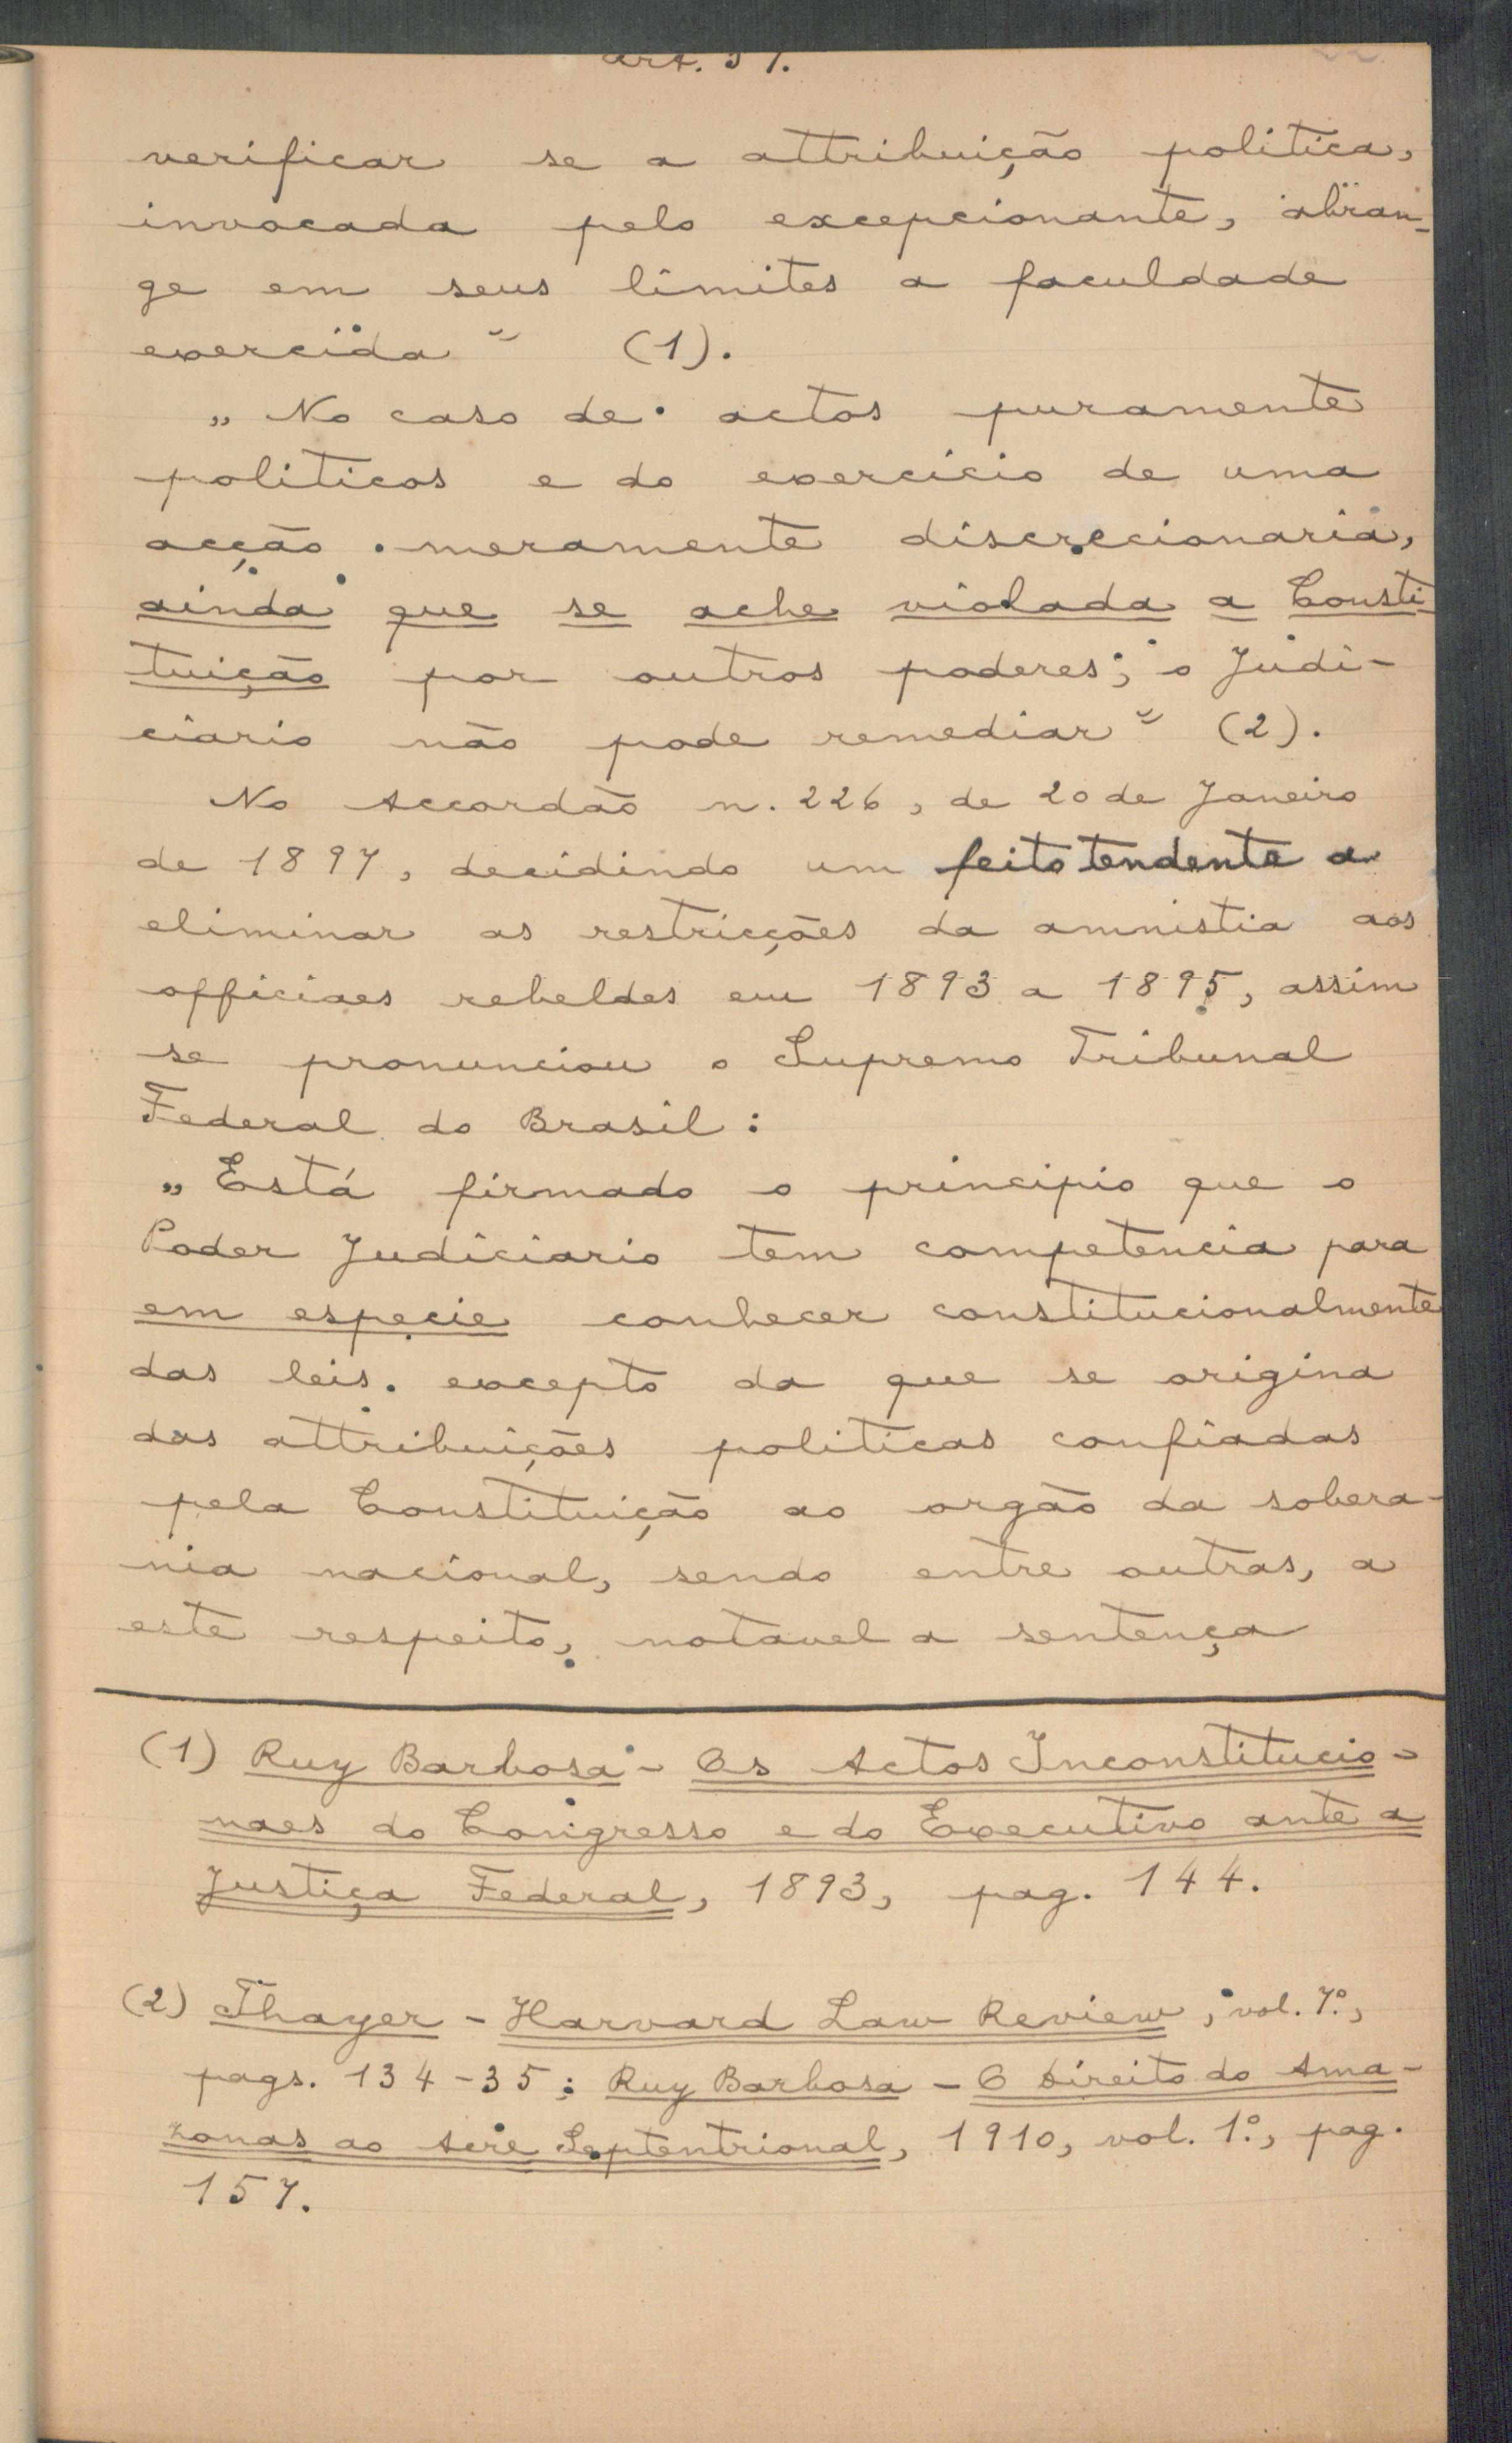 verificar se a attribuição politica,
invocada pelo excepcionante, abran-
ge em seus limites a faculdade
exercida" (1).
„ No caso de actos puramente
politicos e do exercicio de uma
acção meramente discrecionaria,
ainda que se ache violada a Consti-
tuição por outros poderes, o Judi-
ciario não pode remediar" (2).
No Accordão n. 226, de 20 de Janeiro
de 1897, decidindo um feito tendente a
eliminar as restricções da amnistia aos
officiaes rebeldes em 1893 a 1895, assim
se pronunciou o Supremo Tribunal
Federal do Brasil:
„ Está firmado o principio que o
Poder Judiciario tem competencia para
em especie conhecer constitucionalmente
das leis. excepto da que se origina
das attribuições politicas confiadas
pela Constituição ao orgão da sobera-
nia nacional, sendo entre outras, a
este respeito, notavel a sentença
(1) Ruy Barbosa - Os Actos Inconstitucio-
naes do Congresso e do Executivo ante a
Justiça Federal, 1893, pag. 144.
(2) Thayer - Harvard Law Review, vol. 7.º,
pags. 134-35; Ruy Barbosa - O Direito do Ama-
zonas ao Acre Septentrional, 1910, vol. 1.º, pag.
157.